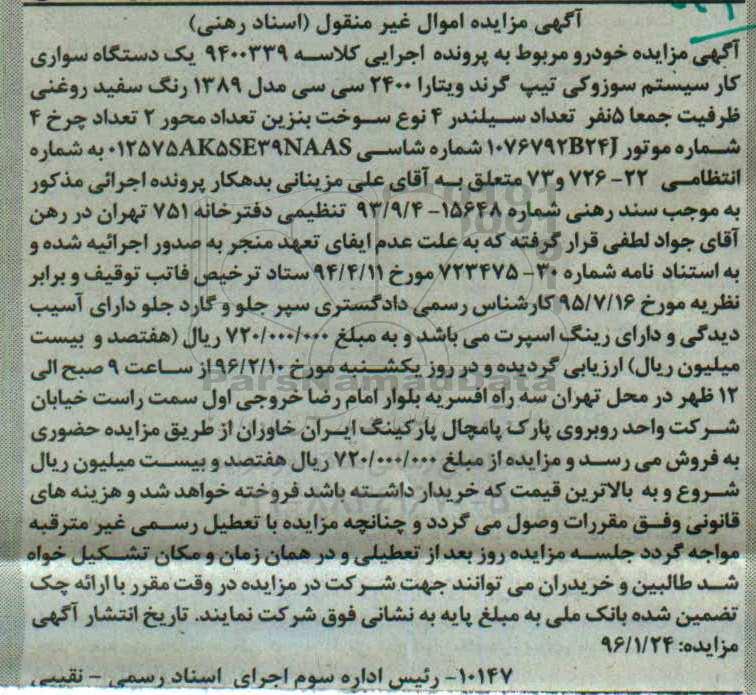 آگهی مزایده اموال غیر منقول (اسناد رهنی)
آگهی مزایده خودرو مربوط به پرونده اجرایی کلاسه ۹۴۰۰۳۳۹ یک دستگاه سواری
کار سیستم سوزوکی تیپ گرند ویتارا ۲۴۰۰ سی سی مدل ۱۳۸۹ رنگ سفید روغنی
ظرفیت جمعا ۵نفر تعداد سیلندر ۴ نوع سوخت بنزین تعداد محور ۲ تعداد چرخ ۴
شماره موتور ۱۰۷۶۷۹۲B۲۴J شماره شاسی ۰۱۲۵۷۵AK۵SE۳۹NAAS به شماره
انتظامی ۲۲- ۷۲۶ و۷۳ متعلق به آقای علی مزینانی بدهکار پرونده اجرائی مذکور
به موجب سند رهنی شماره ۱۵۶۴۸- ۹۳/۹/۴ تنظیمی دفترخانه ۷۵۱ تهران در رهن
آقای جواد لطفی قرار گرفته که به علت عدم ایفای تعهد منجر به صدور اجرائیه شده و
به استناد نامه شماره ۳۰- ۷۲۳۴۷۵ مورخ ۹۴/۴/۱۱ ستاد ترخیص فاتب توقیف و برابر
نظریه مورخ ۹۵/۷/۱۶ کارشناس رسمی دادگستری سپر جلو و گارد جلو دارای آسیب
دیدگی و دارای رینگ اسپرت می باشد و به مبلغ ۷۲۰/۰۰۰/۰۰۰ ریال (هفتصد و بیست
میلیون ریال) ارزیابی گردیده و در روز یکشنبه مورخ ۹۶/۲/۱۰از ساعت ۹ صبح الی
۱۲ ظهر در محل تهران سه راه افسریه بلوار امام رضا خروجی اول سمت راست خیابان
شرکت واحد روبروی پارک پامچال پارکینگ ایران خاوران از طریق مزایده حضوری
به فروش می رسد و مزایده از مبلغ ۷۲۰/۰۰۰/۰۰۰ ریال هفتصد و بیست میلیون ریال
شروع و به بالاترین قیمت که خریدار داشته باشد فروخته خواهد شد و هزینه های
قانونی وفق مقررات وصول می گردد و چنانچه مزایده با تعطیل رسمی غیر مترقبه
مواجه گردد جلسه مزایده روز بعد از تعطیلی و در همان زمان و مکان تشکیل خواه
شد طالبین و خریدران می توانند جهت شرکت در مزایده در وقت مقرر با ارائه چک
تضمین شده بانک ملی به مبلغ پایه به نشانی فوق شرکت نمایند. تاریخ انتشار آگهی
مزایده: ۹۶/۱/۲۴
۱۰۱۴۷- رئیس اداره سوم اجرای اسناد رسمی - نقیبی
ParsNamadData